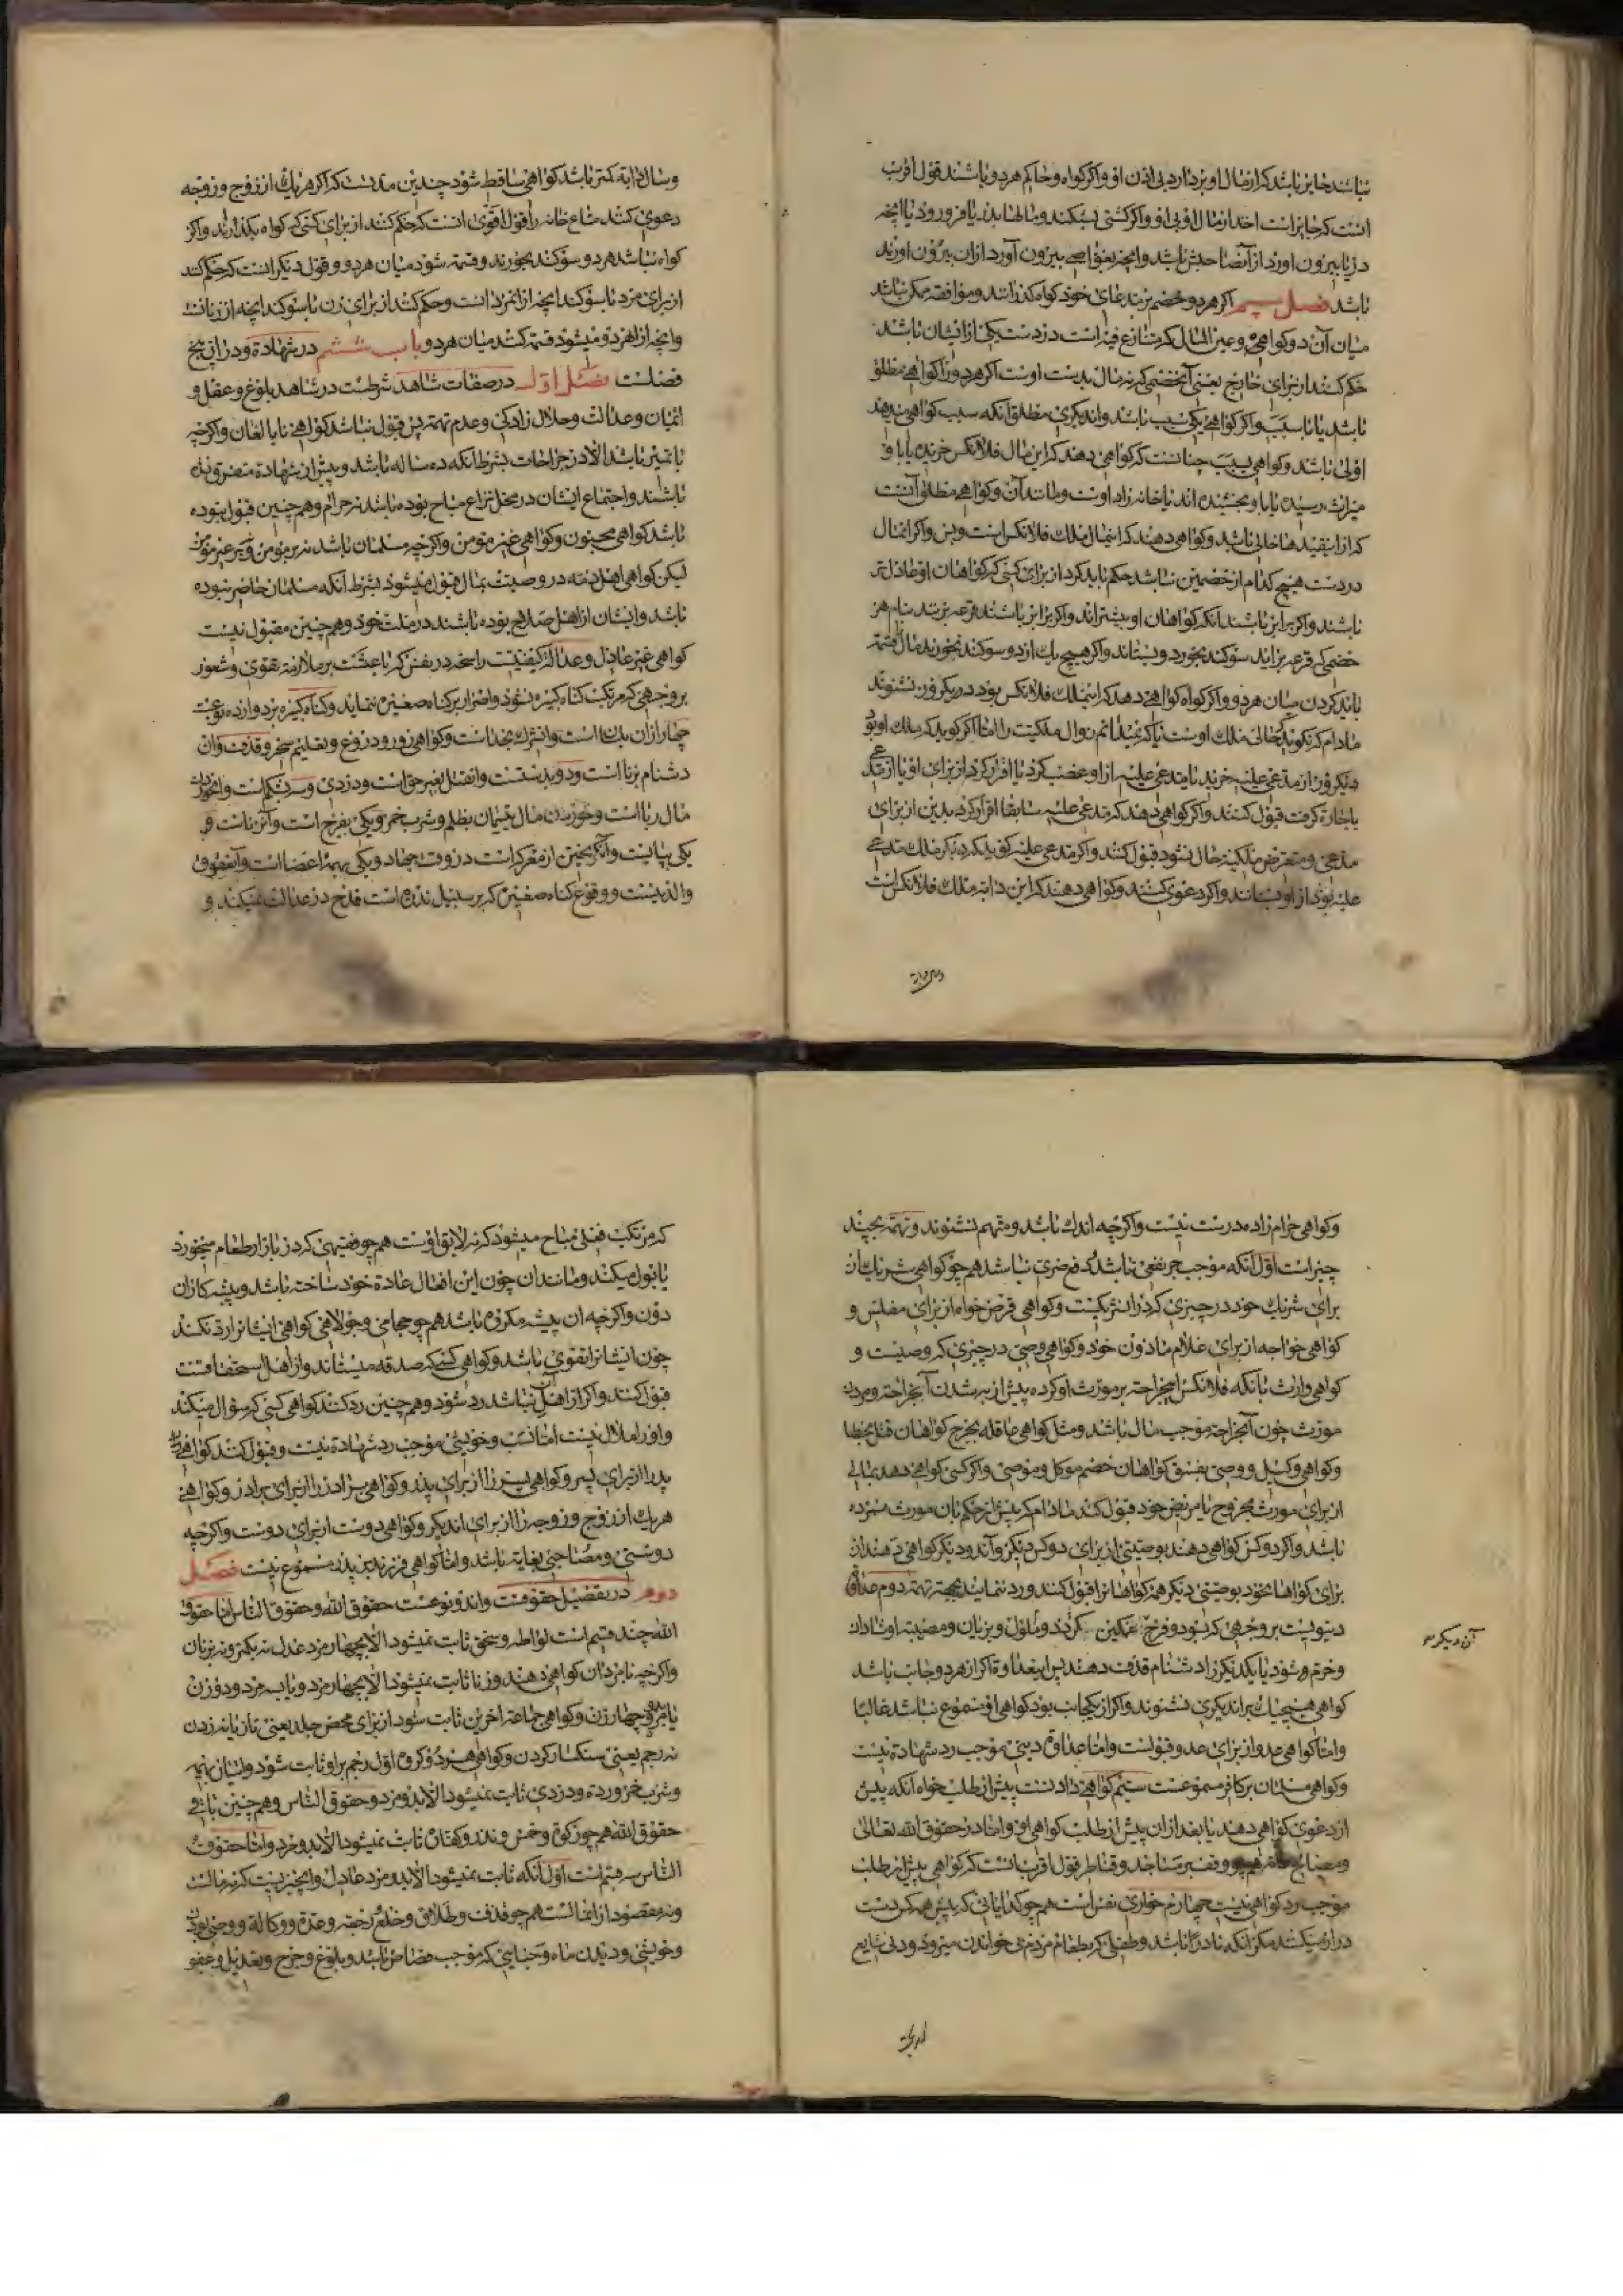 نباشد جایز باشد که از مال او بردارد بی اذن او و اگر گواه و حاکم هر دو باشند قول اقرب
انست که جایز است اخذ از مال او بی اذن او و اگر کشتی بشکند و مالها بدریا فرو رود پس انچه
دریا بیرون اورد از آن صاحبش باشد و انچه بغواصی بیرون آورد از ان بیرون اورنده
باشد فصل سیم اگر هر دو خصم بر مدعای خود گواه گذرانند و موافقه ممکن نباشد
میان آن دو گواهی و عین المال که متنازع فیه است در دست یکی از ایشان باشد
حکم کنند از برای خارج یعنی آنخصمی که نه مال بدست اوست اگر هر دو را گواهی مطلق
باشد یا با سبب و اگر گواهی یکی بسبب باشد و اندیگری مطلق آنکه سبب گواهی میدهند
اولی باشد و گواهی بسبب چنانست که گواهی دهند که این مال فلانکس خریده یا باو
میراث رسیده یا باو بخشیده اند یا خانه زاد اوست و مانند آن و گواهی مطلق آنست
که از این قیدها خالی باشد و گواهی دهند که اینمال ملک فلانکس است و بس و اگر انمال
در دست هیچ کدام از خصمین نباشد حکم باید کرد از برای کسی که گواهان او عادل تر
باشند و اگر برابر باشند آنکه گواهان او بیشتراند و اگر برابر باشند قرعه بزنند بنام هر
خصمی که قرعه براید سوگند بخورد و بستاند و اگر هیچ یک از دو سوگند نخورند مال قسمة
باید کردن میان هر دو و اگر گواه گواهی دهد که اینملک فلانکس بود در دیگر روز نشنوند
مادام که نگوید که حالی ملک اوست یا که نمیدانم زوال ملکیت را اما اگر گوید که ملک او بود
دیگر روز از مدعی علیه خرید یا مدعی علیه از او غصب کرد یا اقرار کرد از برای او یا از مدعی
باجارة گرفت قبول کنند و اگر گواهی دهند که مدعی علیه سابقا اقرار کرده بدین از برای
مدعی و متعرض ملکیة حال نشود قبول کنند و اگر مدعی علیه گوید که دیگر ملک مدعی
علیه بود از او بستاند و اگر دعوی کنند و گواهی دهند که این دابه ملک فلانکس است
وسال دابة کمتر باشد گواهی ساقط شود چندین مدتست که اگر هر یک از زوج و زوجه
دعوی کنند متاع خانه را قول اقوی انست که حکم کنند از برای کسی که گواه بگذارند و اگر
گواه نباشد هر دو سوگند بخورند و قسمة شود میان هر دو و قول دیگر انست که حکم کنند
از برای مرد با سوگند انچه از ان مرد است و حکم کنند از برای زن با سوگند انچه از زنانست
وانچه از هر دو میشود قسمة کنند میان هر دو باب ششم در شهادة و در ان پنج
فصلست فصل اول در صفات شاهد شرطست در شاهد بلوغ و عقل و
ایمان و عدالت و حلال زادگی و عدم تهمة پس قبول نباشد گواهی نابالغان و اگر چه
با تمیز باشد الا در جراحات بشرط آنکه ده ساله باشد و پیش از شهادة متفرق نشده
باشند و اجتماع ایشان در محل نزاع مباح بوده باشد نه حرام و هم چنین قبول نبوده
باشد گواهی مجنون و گواهی غیر مومن و اگر چه مسلمان باشد نه بر مومن و نه بر غیر مومن
لیکن گواهی اهل ذمه در وصیت بمال قبول میشود بشرط آنکه مسلمان حاضر نبوده
باشد و ایشان از اهل صلاح بوده باشند در ملت خود و هم چنین مقبول نیست
گواهی غیر عادل و عدالة کیفیتیست راسخه در نفس که باعثست بر ملازمة تقوی و شعور
بر وجهی که مرتکب گناه کبیره نشود و اصرار بر گناه صغیره ننماید و گناه کبیره بر دوازده نوعست
چهار از ان بدل است و انشرک بخداست و گواهی زور و دروغ و تعلیم سحر و قذف و ان
دشنام بزنا است و دو بدستست و انقتل بغیر حق است و دزدی و سه بشکم است و انخوردن
مال ربا است و خوردن مال یتیمان بظلم و شرب خمر و یکی بفرج است و آنزناست و
یکی بپایست و آن گریختن از معرکه است در وقت جهاد و یکی بهمه اعضا است و آنعقوق
والدینست و وقوع گناه صغیره که بر سبیل ندرة است قدح در عدالت نمیکند و
وگواهی حرام زاده درست نیست و اگر چه اندک باشد و متهم نشنوند و تهمة بچند
چیز است اول آنکه موجب جر نفعی باشد یا دفع ضرری نباشد هم چو گواهی شریک از
برای شریک خود در چیزی که در ان شریکست و گواهی قرض خواه از برای مفلس و
گواهی خواجه از برای غلام ماذون خود و گواهی وصی در چیزی که وصیست و
گواهی وارث بانکه فلانکس انجراحة بر مورث او کرده پیش از به شدن آنجراحة و مردن
مورث چون آنجراحة موجب مال باشد و مثل گواهی عاقله بجرح گواهان قتل بخطا
وگواهی وکیل و وصی بفسق گواهان خصم موکل و موصی و اگر کسی گواهی دهد بمالی
از برای مورث مجروح یا مریض خود قبول کند مادام که پیش از حکم بان مورث نمرده
باشد و اگر دو کس گواهی دهند بوصیتی از برای دو کس دیگر و آندو دیگر گواهی دهند از
برای گواها بخود بوصیتی دیگر همه گواهانرا قبول کنند و رد ننمایند بجهة تهمة دوم عداوة
دنیویست بر وجهی که بود و فرح غمگین گردد و ملول و بزیان و مصیبة او شادان
وخرم و شود یا یکدیگر را دشنام قذف دهند پس اینعداوة اگر از هر دو جانب باشد
گواهی هیچیک بر اندیگری نشنوند و اگر از یکجانب بود گواهی او مسموع نباشد غالبا
واما گواهی عدو از برای عدو قبولست و اما عداوة دینی موجب رد شهادة نیست
وگواهی مسلمان بر کافر مسموعست سیم گواهی دادنست پیش از طلب خواه آنکه پیش
از دعوی گواهی دهد یا بعد از ان پیش از طلب گواهی او و اما در حقوق الله تعالی
ومصالح عامه هم چو وقف بر مساجد و قناطر قول اقرب انست که گواهی پیش از طلب
موجب رد گواهی نیست چهارم خواری نفس است هم چو گدایانی که پیش همه کس دست
دراز میکنند مگر آنکه نادرا باشد و طفیلی که بطعام مردم بی خواندن میرود و دنی شایع
آن دیگر
که مرتکب فعلی مباح میشود که نه لایق اوست هم چو فقیهی که در بازار طعام میخورد
یا بول میکند و مانند ان چون این افعال عادة خود ساخته باشد و پیشه کاران
دون و اگر چه ان پیشه مکروه باشد هم چو حجامی و جولاهی گواهی ایشانرا رد نکنند
چون ایشانرا تقوی باشد و گواهی کسی که صدقه میستاند و از اهل استحقاقست
قبول کنند و اگر از اهل آن نباشد رد شود و هم چنین رد کنند گواهی کسی که سؤال میکند
واو را ملال نیست اما نسب و خویشی موجب رد شهادة نیست و قبول کنند گواهی
پدر از برای پسر و گواهی پسر را از برای پدر و گواهی برادر را از برای برادر و گواهی
هر یک از زوج و زوجه را از برای اندیگر و گواهی دوست از برای دوست و اگر چه
دوستی و مصاحبی بغایة باشد و اما گواهی فرزند بر پدر مسموع نیست فصل
دوم در تفصیل حقوقست و ان دو نوعست حقوق الله و حقوق الناس اما حقوق
الله چند قسم است لواطه و سحق ثابت نمیشود الا بچهار مرد عدل نه بکمتر و نه بزنان
واگر چه با مردان گواهی دهند و زنا ثابت نمیشود الا بچهار مرد و یا بسه مرد و دو زن
یا بدو مرد و چهار زن و گواهی جماعة اخرین ثابت شود از برای محض جلد یعنی تازیانه زدن
نه رجم یعنی سنگسار کردن و گواهی هر دو گروه اول رجم بر او ثابت شود و اتیان بهیمه
وشرب خمر و ردة و دزدی ثابت نمیشود الا بدو مرد و حقوق الناس و هم چنین باقی
حقوق الله هم چو زکوة و خمس و نذر و کفارة ثابت نمیشود الا بدو مرد و اما حقوق
الناس سه قسم است اول آنکه ثابت نمیشود الا بدو مرد عادل و انچیزیست که نه مالست
ونه مقصود از انمالست هم چو قذف و طلاق و خلع و رجعة و عدة و وکالة و وصی بودن
وخویشی و دیدن ماه و جنایتی که موجب قصاص باشد و بلوغ و جرح و تعدیل و عفو